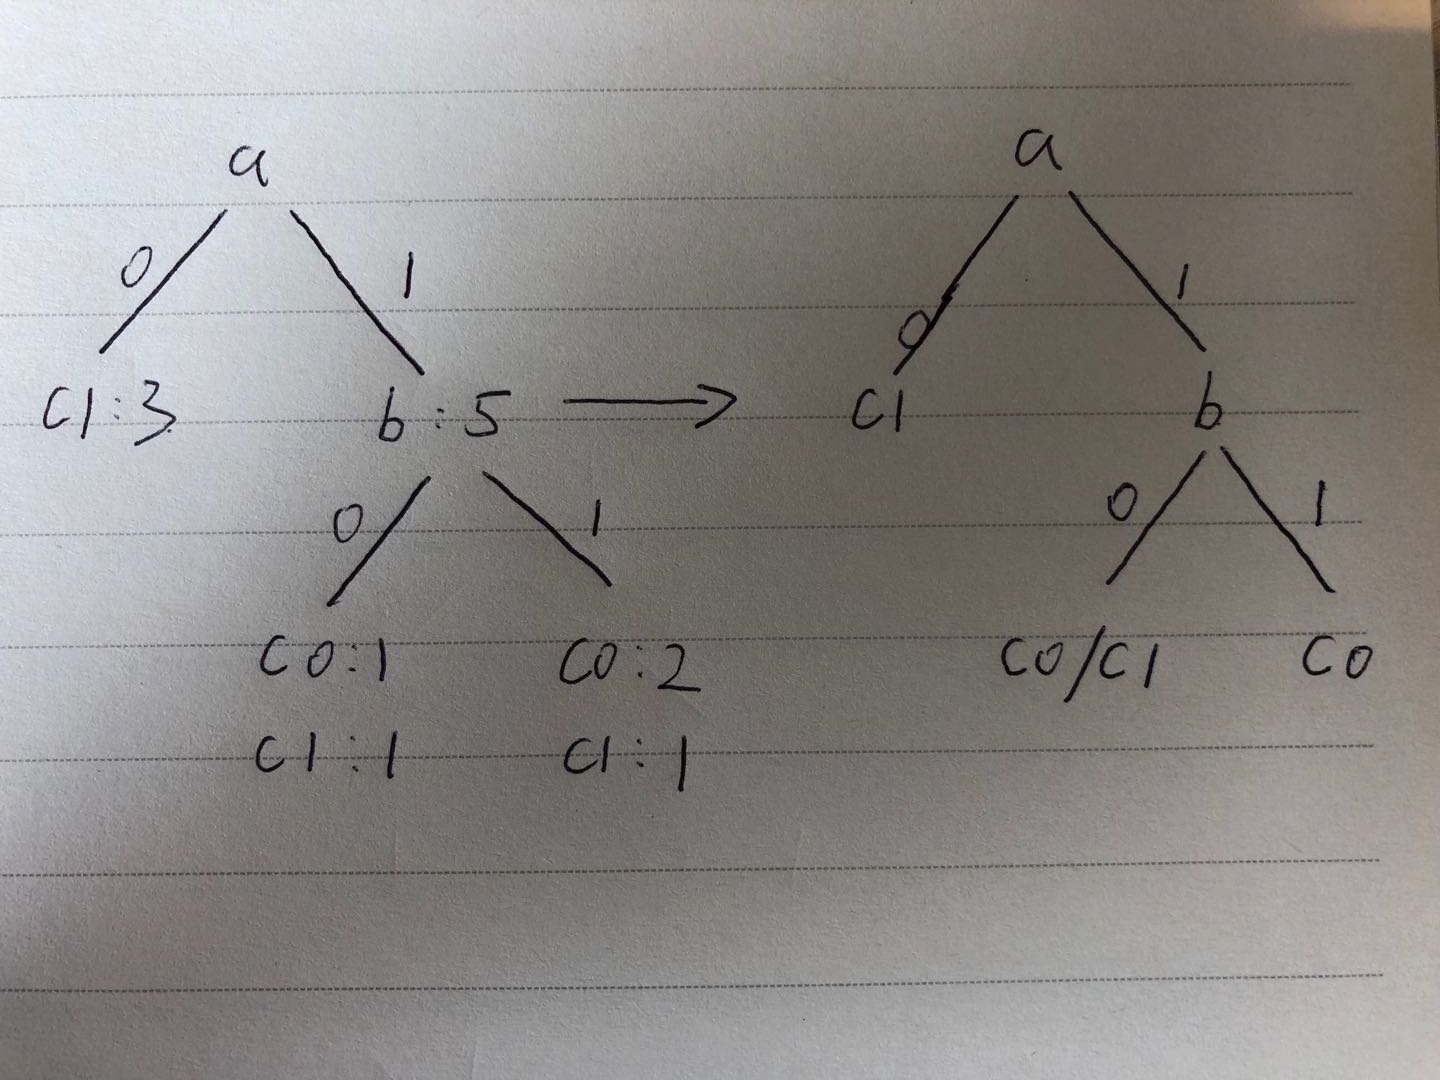 a
0 1
C1:3 b:5
0 1
C0:1 C0:2
C1:1 C1:1
a
0 1
C1 b
0 1
C0/C1 C0